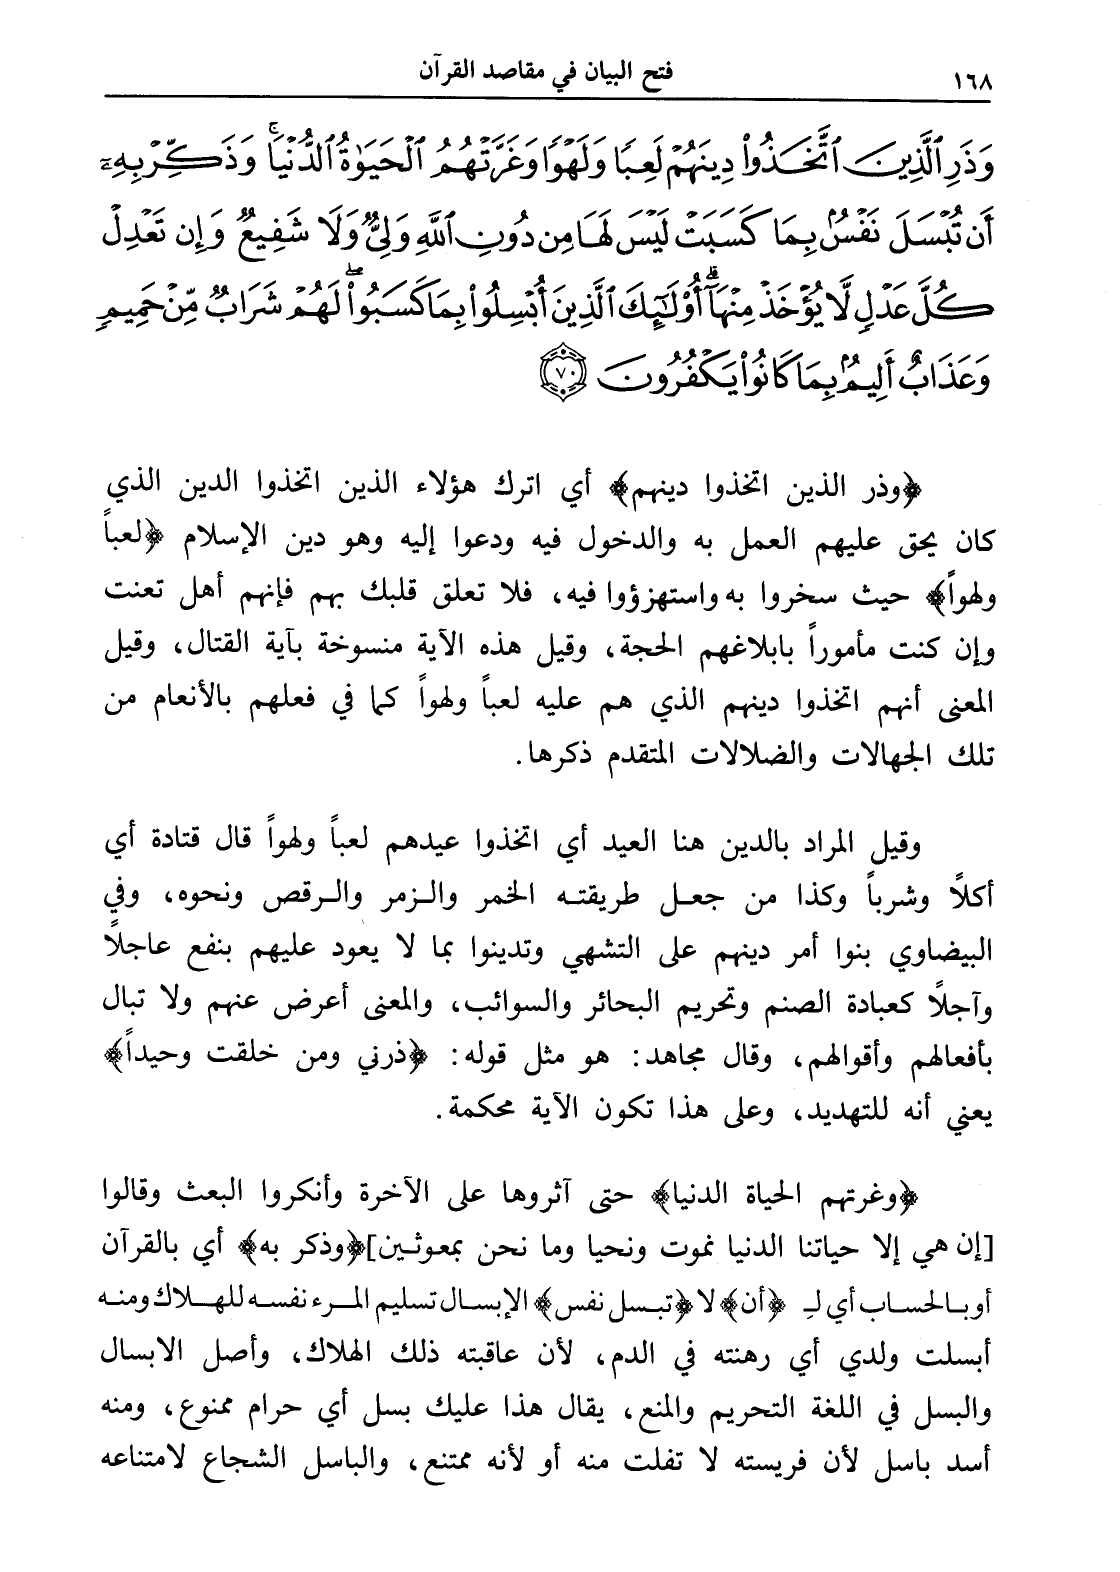 ١٦٨ فتح البيان في مقاصد القرآن
وَذَرِ ٱلَّذِينَ ٱتَّخَذُوا۟ دِينَهُمْ لَعِبًا وَلَهْوًا وَغَرَّتْهُمُ ٱلْحَيَوٰةُ ٱلدُّنْيَا ۚ وَذَكِّرْ بِهِۦٓ
أَن تُبْسَلَ نَفْسٌۢ بِمَا كَسَبَتْ لَيْسَ لَهَا مِن دُونِ ٱللَّهِ وَلِىٌّ وَلَا شَفِيعٌ وَإِن تَعْدِلْ
كُلَّ عَدْلٍ لَّا يُؤْخَذْ مِنْهَآ ۗ أُو۟لَٰٓئِكَ ٱلَّذِينَ أُبْسِلُوا۟ بِمَا كَسَبُوا۟ ۖ لَهُمْ شَرَابٌ مِّنْ حَمِيمٍ
وَعَذَابٌ أَلِيمٌۢ بِمَا كَانُوا۟ يَكْفُرُونَ ﴿٧٠﴾
﴿وذر الذين اتخذوا دينهم﴾ أي اترك هؤلاء الذين اتخذوا الدين الذي
كان يحق عليهم العمل به والدخول فيه ودعوا إليه وهو دين الإسلام ﴿لعباً
ولهواً﴾ حيث سخروا به واستهزؤوا فيه، فلا تعلق قلبك بهم فإنهم أهل تعنت
وإن كنت مأموراً بابلاغهم الحجة، وقيل هذه الآية منسوخة بآية القتال، وقيل
المعنى أنهم اتخذوا دينهم الذي هم عليه لعباً ولهواً كما في فعلهم بالأنعام من
تلك الجهالات والضلالات المتقدم ذكرها.
وقيل المراد بالدين هنا العيد أي اتخذوا عيدهم لعباً ولهواً قال قتادة أي
أكلاً وشرباً وكذا من جعل طريقته الخمر والزمر والرقص ونحوه، وفي
البيضاوي بنوا أمر دينهم على التشهي وتدينوا بما لا يعود عليهم بنفع عاجلاً
وآجلاً كعبادة الصنم وتحريم البحائر والسوائب، والمعنى أعرض عنهم ولا تبال
بأفعالهم وأقوالهم، وقال مجاهد: هو مثل قوله: ﴿ذرني ومن خلقت وحيداً﴾
يعني أنه للتهديد، وعلى هذا تكون الآية محكمة.
﴿وغرتهم الحياة الدنيا﴾ حتى آثروها على الآخرة وأنكروا البعث وقالوا
[إن هي إلا حياتنا الدنيا نموت ونحيا وما نحن بمعوثين]﴿وذكر به﴾ أي بالقرآن
أو بالحساب أي لـِ ﴿أن﴾ لا ﴿تبسل نفس﴾ الإبسال تسليم المرء نفسه للهلاك ومنه
أبسلت ولدي أي رهنته في الدم، لأن عاقبته ذلك الهلاك، وأصل الابسال
والبسل في اللغة التحريم والمنع، يقال هذا عليك بسل أي حرام ممنوع، ومنه
أسد باسل لأن فريسته لا تفلت منه أو لأنه ممتنع، والباسل الشجاع لامتناعه